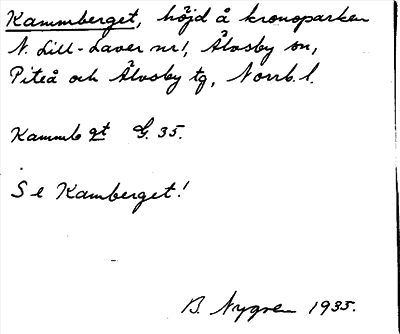 Kammberget, höjd å kronoparken
N. Lill-Laver nr 1, Älvsby sn,
Piteå och Älvsby tg, Norrb. l.
Kammb gt G. 35.
Se Kamberget!
B. Nygren 1935.